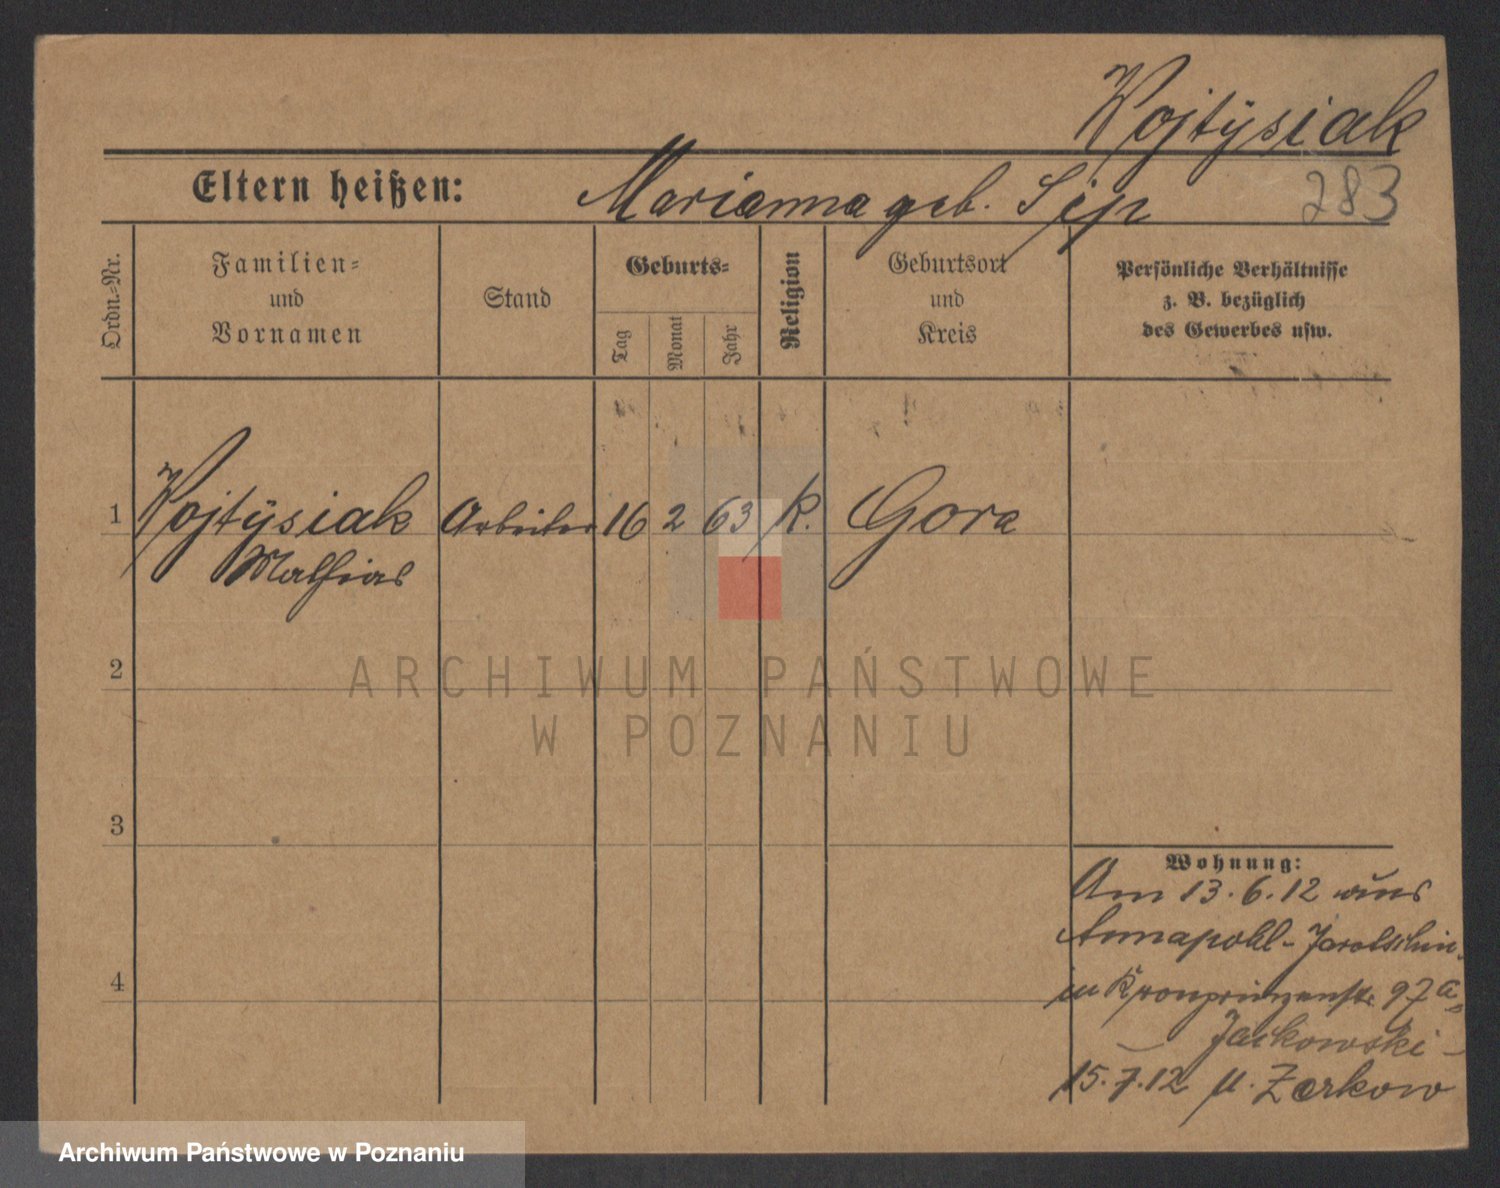 Wojtÿsiak
Eltern heißen: Marianna geb. Sip
283
Ordn.-Nr.
Familien-
und
Vornamen
Stand
Geburts-
Tag
Monat
Jahr
Religion
Geburtsort
und
Kreis
Persönliche Verhältnisse
z. B. bezüglich
des Gewerbes usw.
1 Wojtÿsiak Arbeiter 16 2 63 k. Gora
Mathias
2
3
4
ARCHIWUM PAŃSTWOWE
W POZNANIU
Wohnung:
Am 13.6.12 aus
Annapohl - Jarotschin
in Kronprinzenstr. 97a
Jackowski -
15.7.12 n. Zerkow
Archiwum Państwowe w Poznaniu